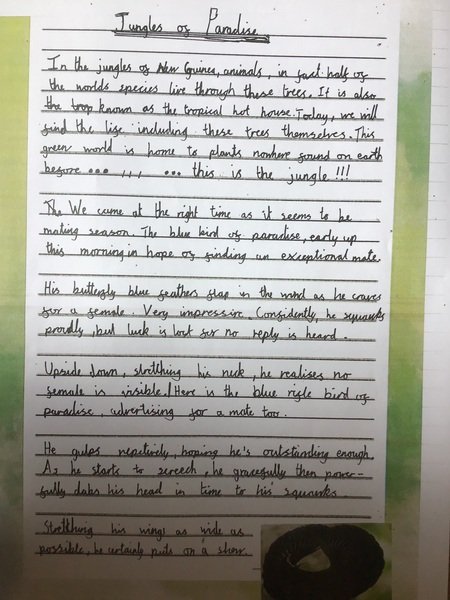 Jungles of Paradise
In the jungles of New Guinea, animals, in fact half of
the worlds species live through these trees. It is also
the trop known as the tropical hot house. Today, we will
find the life, including these trees themselves. This
green world is home to plants nowhere found on earth
before ... ,,, ... this is the jungle !!!
The We came at the right time as it seems to be
mating season. The blue bird of paradise, early up
this morning in hope of finding an exceptional mate.
His butterfly blue feathers flap in the wind as he craves
for a female. Very impressive. Confidently, he squawks
proudly, but luck is lost for no reply is heard.
Upside down, stretching his neck, he realises no
female is visible! Here is the blue rifle bird of
paradise, advertising for a mate too.
He gulps hoping he's outstanding enough.
As he starts to screech, he gracefully then power-
fully dabs his head in time to his squawks.
Stretching his wings as wide as
possible, he certainly puts on a show.